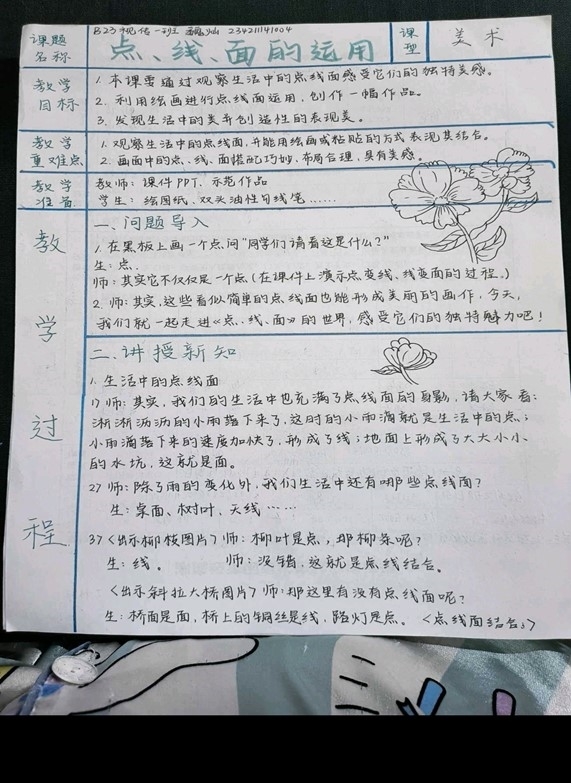 B23视传一班 魏灿 234211141004
课题名称
点、线、面的运用
课型
美术
教学目标
1. 本课要通过观察生活中的点线面感受它们的独特美感。
2. 利用绘画进行点线面运用,创作一幅作品。
3. 发现生活中的美并创造性的表现美。
教学重难点
1. 观察生活中的点线面,并能用绘画或粘贴的方式表现其结合。
2. 画面中的点、线、面搭配巧妙,布局合理,具有美感。
教学准备
教师:课件PPT、示范作品
学生:绘图纸、双头油性勾线笔……
教学过程
一、问题导入
1. 在黑板上画一个点,问“同学们请看这是什么?”
生:点.
师:其实它不仅仅是一个点(在课件上演示点变线、线变面的过程.)
2. 师:其实,这些看似简单的点线面也能形成美丽的画作,今天,
我们就一起走进《点、线、面》的世界,感受它们的独特魅力吧!
二、讲授新知
1. 生活中的点线面
1) 师:其实,我们的生活中也充满了点线面的身影,请大家看:
淅淅沥沥的小雨落下来了,这时的小雨滴就是生活中的点;
小雨滴落下来的速度加快了,形成了线;地面上形成了大大小小
的水坑,这就是面。
2) 师:除了雨的变化外,我们生活中还有哪些点线面?
生:桌面、树叶、天线……
3) <出示柳枝图片> 师:柳叶是点,那柳条呢?
生:线。 师:没错,这就是点线结合。
<出示斜拉大桥图片> 师:那这里有没有点线面呢?
生:桥面是面,桥上的钢丝是线,路灯是点。<点线面结合>